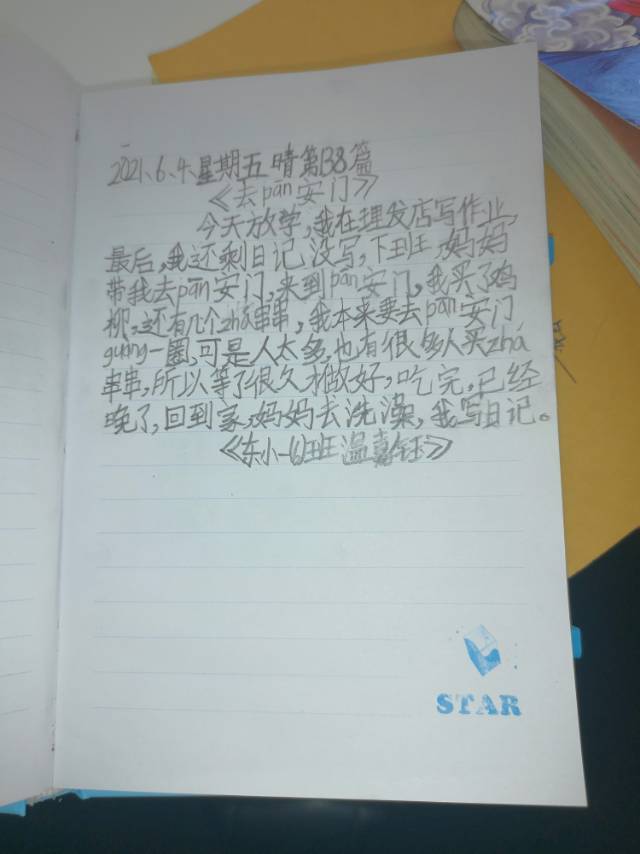 2021.6.4.星期五 晴 第138篇
《去pān安门》
今天放学,我在理发店写作业,
最后,我还剩日记没写,下班,妈妈
带我去pān安门,来到pān安门,我买了鸡
柳,还有几个zhá串串,我本来要去pān安门
guàng一圈,可是人太多,也有很多人买zhá
串串,所以等了很久才做好,吃完,已经
晚了,回到家,妈妈去洗澡,我写日记。
《东小一(6)班温嘉钰》
STAR